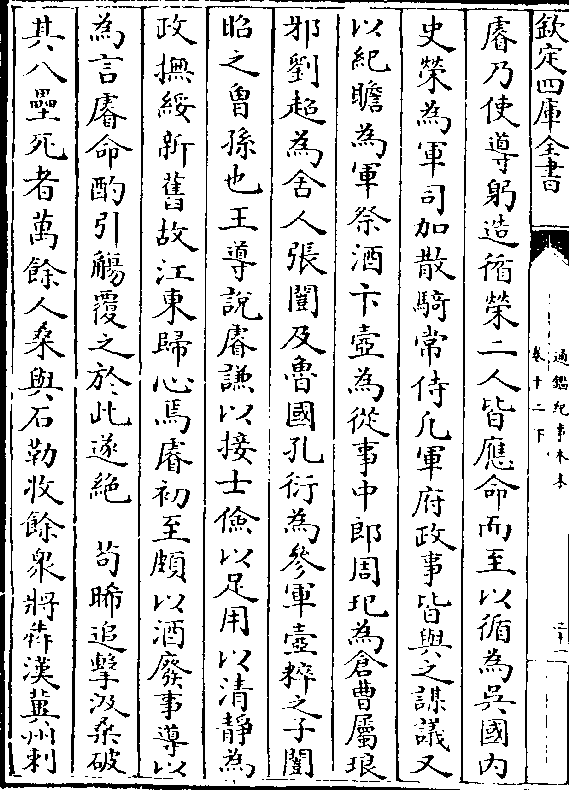 欽定四庫全書
通鑑紀事本末
卷十二下
睿乃使導躬造循榮二人皆應命而至以循為吳國内
史榮為軍司加散騎常侍凡軍府政事皆與之謀議又
以紀瞻為軍祭酒卞壼為從事中郎周玘為倉曹屬琅
邪劉超為舍人張闓及魯國孔衍為參軍壼粹之子闓
昭之曾孫也王導說睿謙以接士儉以足用以清靜為
政撫綏新舊故江東歸心焉睿初至頗以酒廢事導以
為言睿命酌引觴覆之於此遂絶　苟晞追擊汲桑破
其八壘死者萬餘人桑與石勒收餘衆將犇漢冀州刺